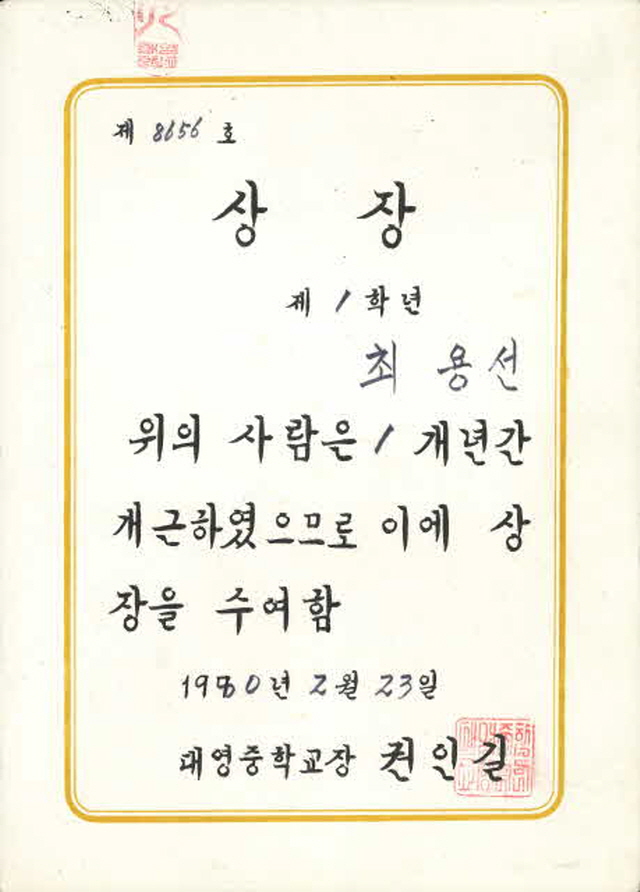 제 8656 호
상 장
제 1 학년
최 용선
위의 사람은 1 개년간
개근하였으므로 이에 상
장을 수여함
1980년 2월 23일
대영중학교장 권인길